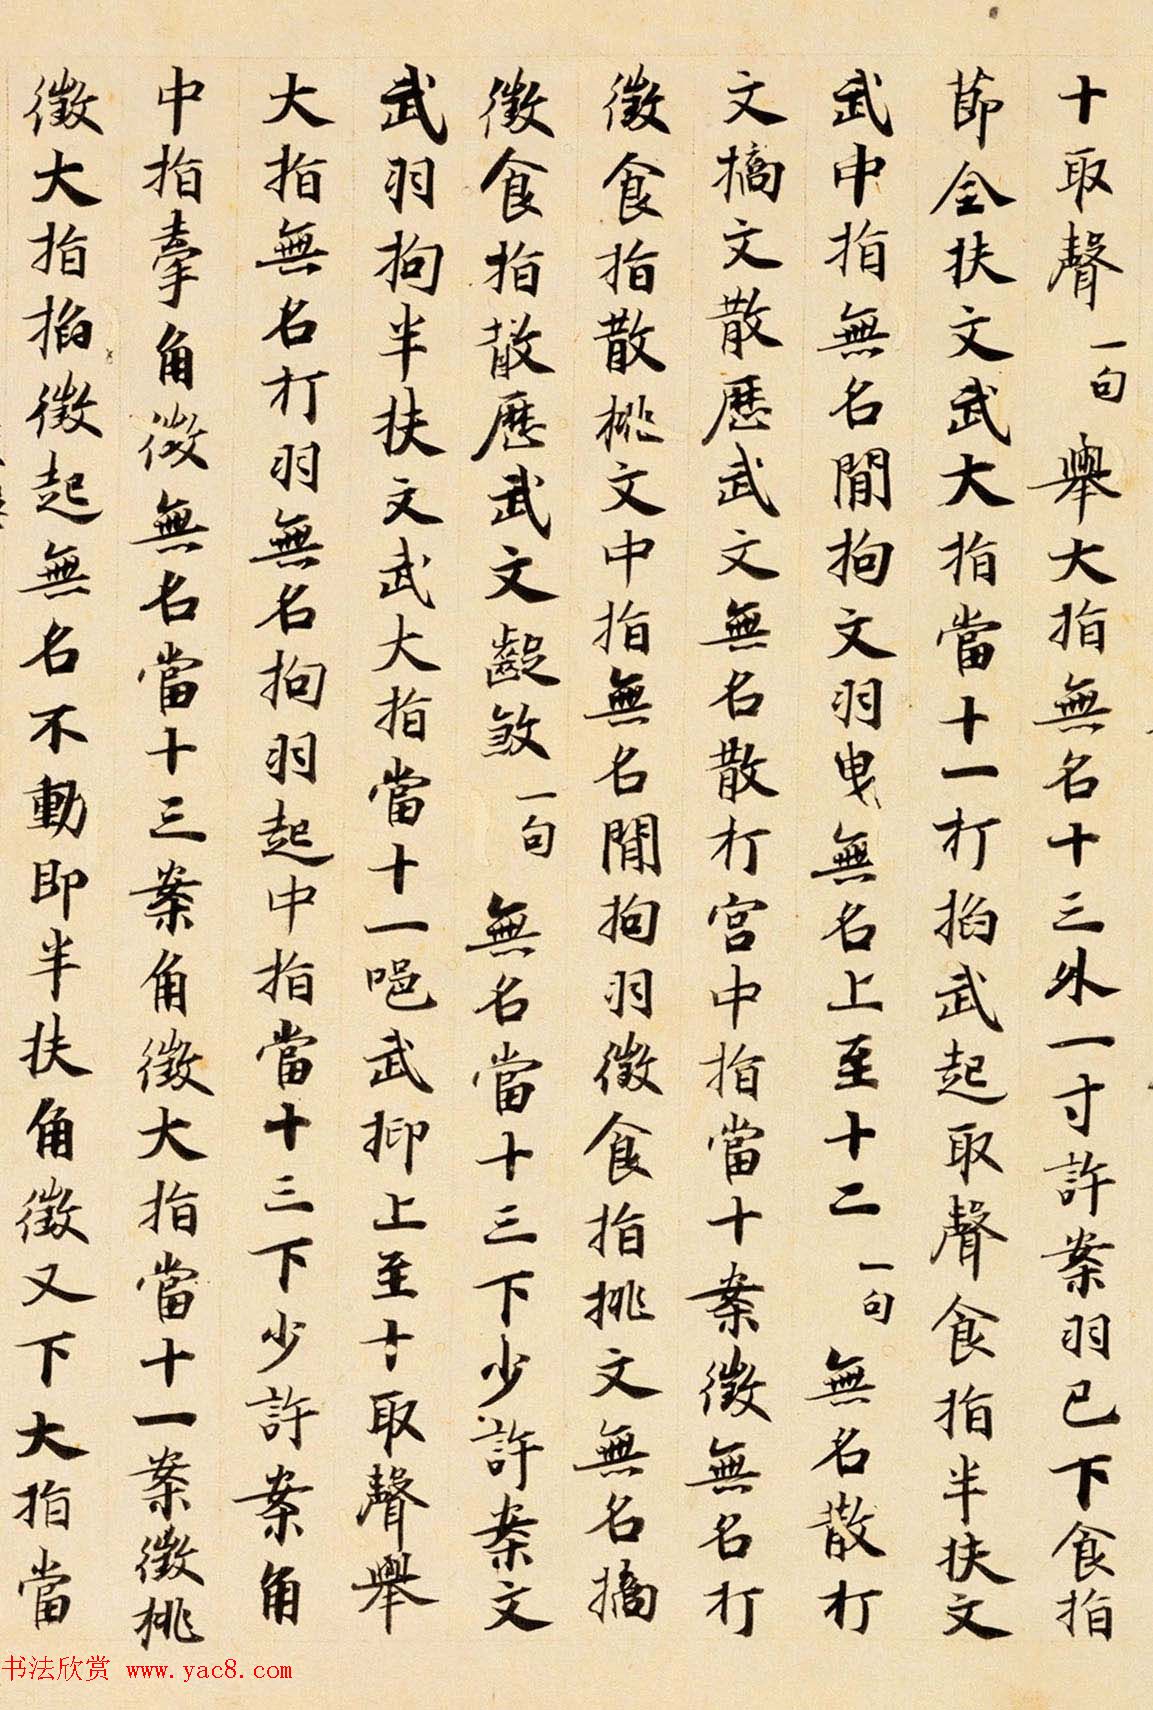 十取聲一句舉大指無名十三外一寸許案羽已下食指
節全扶文武大指當十一打掐武起取聲食指半扶文
武中指無名間拘文羽曳無名上至十二一句無名散打
文擿文散歷武文無名散打宮中指當十案徵無名打
徵食指散挑文中指無名間拘羽徵食指挑文無名擿
徵食指散歷武文齪煞一句無名當十三下少許案文
武羽拘半扶文武大指當十一唈武抑上至十取聲舉
大指無名打羽無名拘羽起中指當十三下少許案角
中指牽角徵無名當十三案角徵大指當十一案徵挑
徵大指掐徵起無名不動即半扶角徵又下大指當
书法欣赏 www.yac8.com